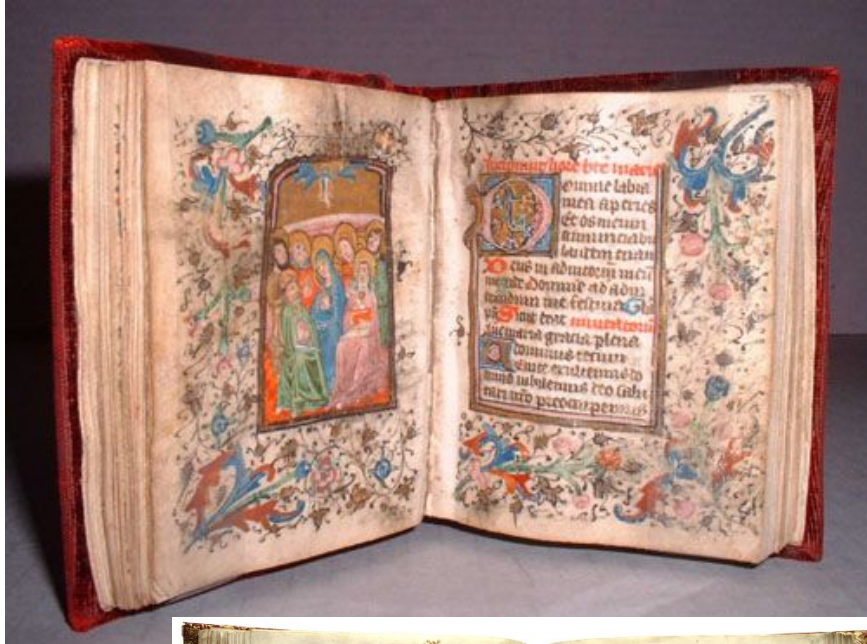 Incipiunt hore bte marie
Domine labia
mea aperies
Et os meum
annunciabit
laudem tuam
Deus in adiutoriu meu
Domine ad adiu
uandum me festina Glia
Sicut erat
Aue maria gracia plena
dominus tecum
Uenite exultemus do
mino iubilemus deo salu
tari nro preoccupemus